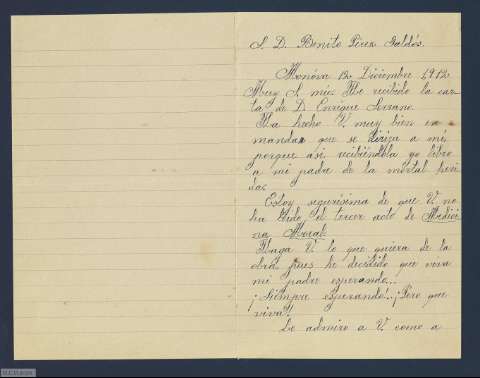 S. D. Benito Pérez Galdós.
Monóvar 12 Diciembre 1912
Muy S. mio: He recibido la car-
ta de D. Enrique Serrano.
Ha hecho V. muy bien en
mandar que se dirija a mi,
porque asi recibiéndola yo libro
a mi padre de la mortal heri-
da.
Estoy segurísima de que V. no
ha leido el tercer acto de Medici-
na Moral.
Haga V. lo que quiera de la
obra, pues he decidido que viva
mi padre esperando...
¡Siempre esperando!.. ¡Pero que
viva!!
Le admiro a V. como a